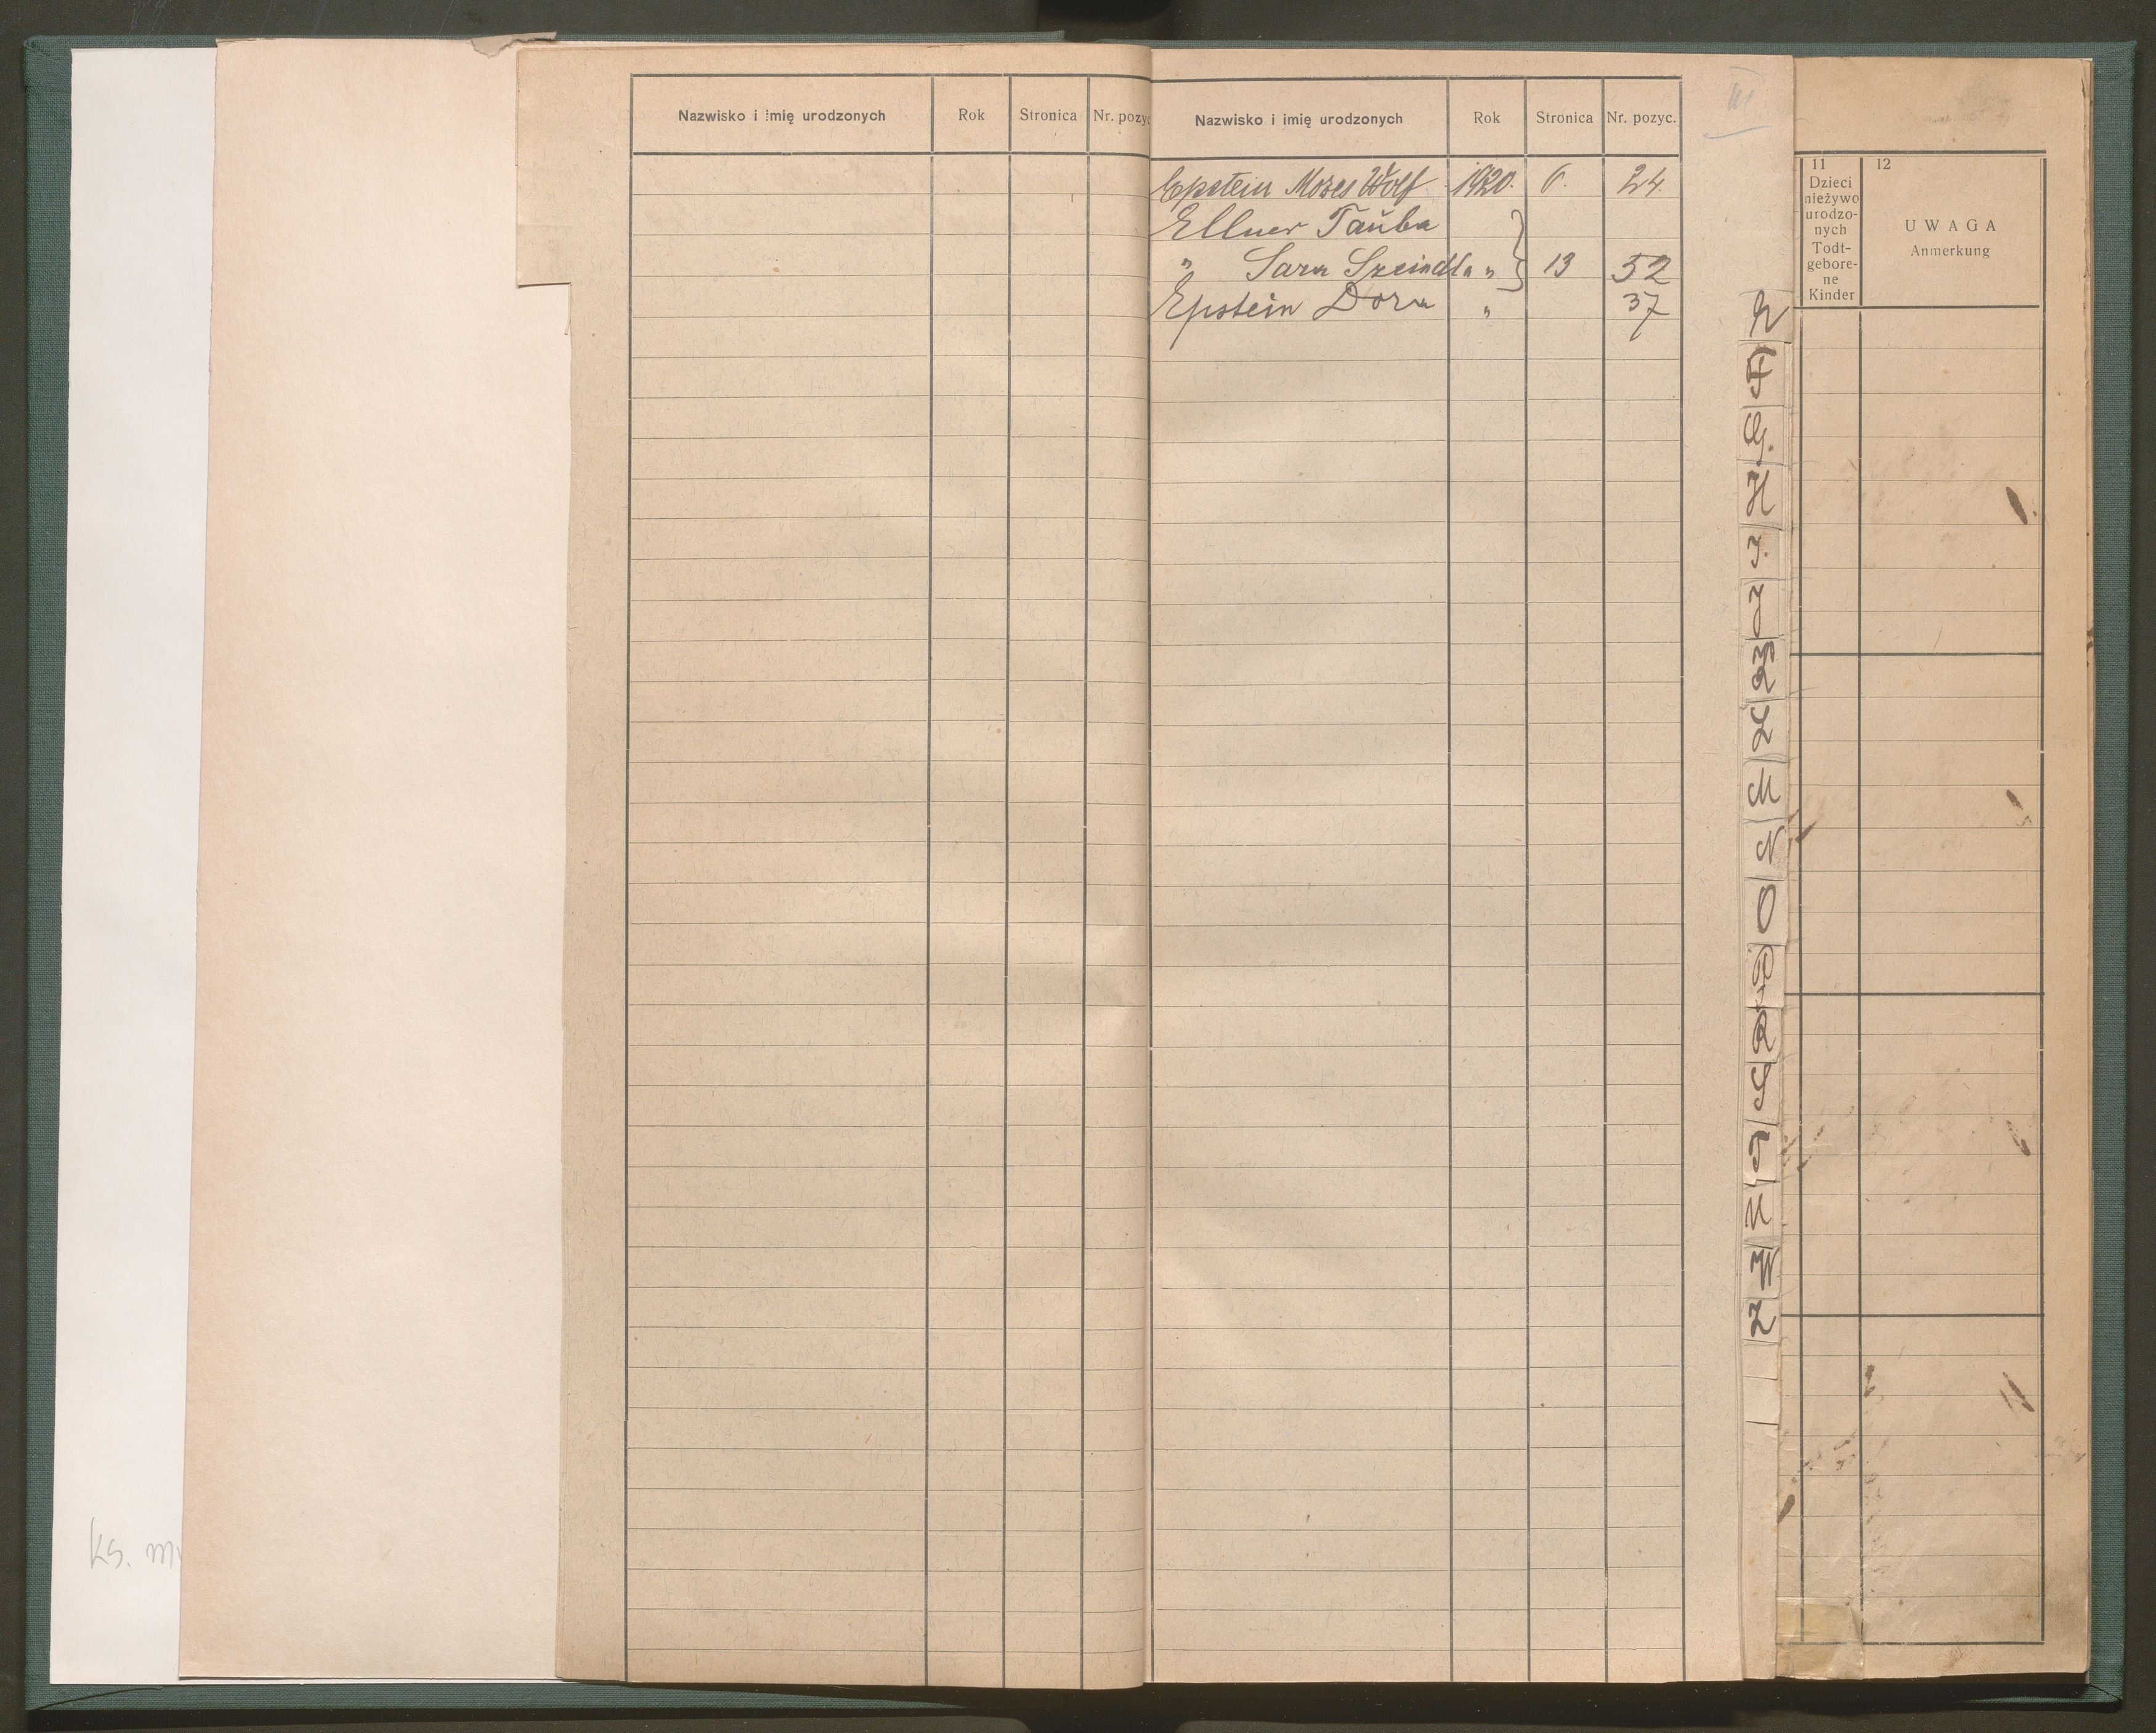 Nazwisko i imię urodzonych Rok Stronica Nr. pozyc
Nazwisko i imię urodzonych Rok Stronica Nr. pozyc.
Epstein Moses Wolf 1920. 6. 24.
Ellner Taŭba
" Sara Szeindla " } 13 52
Epstein Dora " 37
III
11
Dzieci
nieżywo
urodzo-
nych
Todt-
gebore-
ne
Kinder
12
UWAGA
Anmerkung
E
F
G.
H
I.
J
K
L
M
N
O
P
R
S
T
U
W
Z
ks.